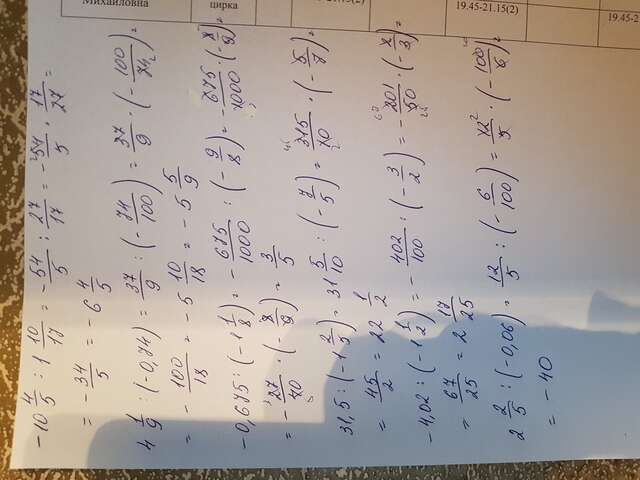 -10 4/5 : 1 10/17 = -54/5 : 27/17 = -54/5 · 17/27 =
= -34/5 = -6 4/5
4 1/9 : (-0,74) = 37/9 : (-74/100) = 37/9 · (-100/74) =
= -100/18 = -5 10/18 = -5 5/9
-0,675 : (-1 1/8) = -675/1000 : (-9/8) = -675/1000 · (-8/9) =
= -27/40 · (-8/9) = 3/5
31,5 : (-1 2/5) = 31 5/10 : (-7/5) = 315/10 · (-5/7) =
= 45/2 = 22 1/2
-4,02 : (-1 1/2) = -402/100 : (-3/2) = -201/50 · (-2/3) =
= 67/25 = 2 17/25
2 2/5 : (-0,06) = 12/5 : (-6/100) = 12/5 · (-100/6) =
= -40
Михайловна
цирка
19.45-21.15(2)
19.45-2